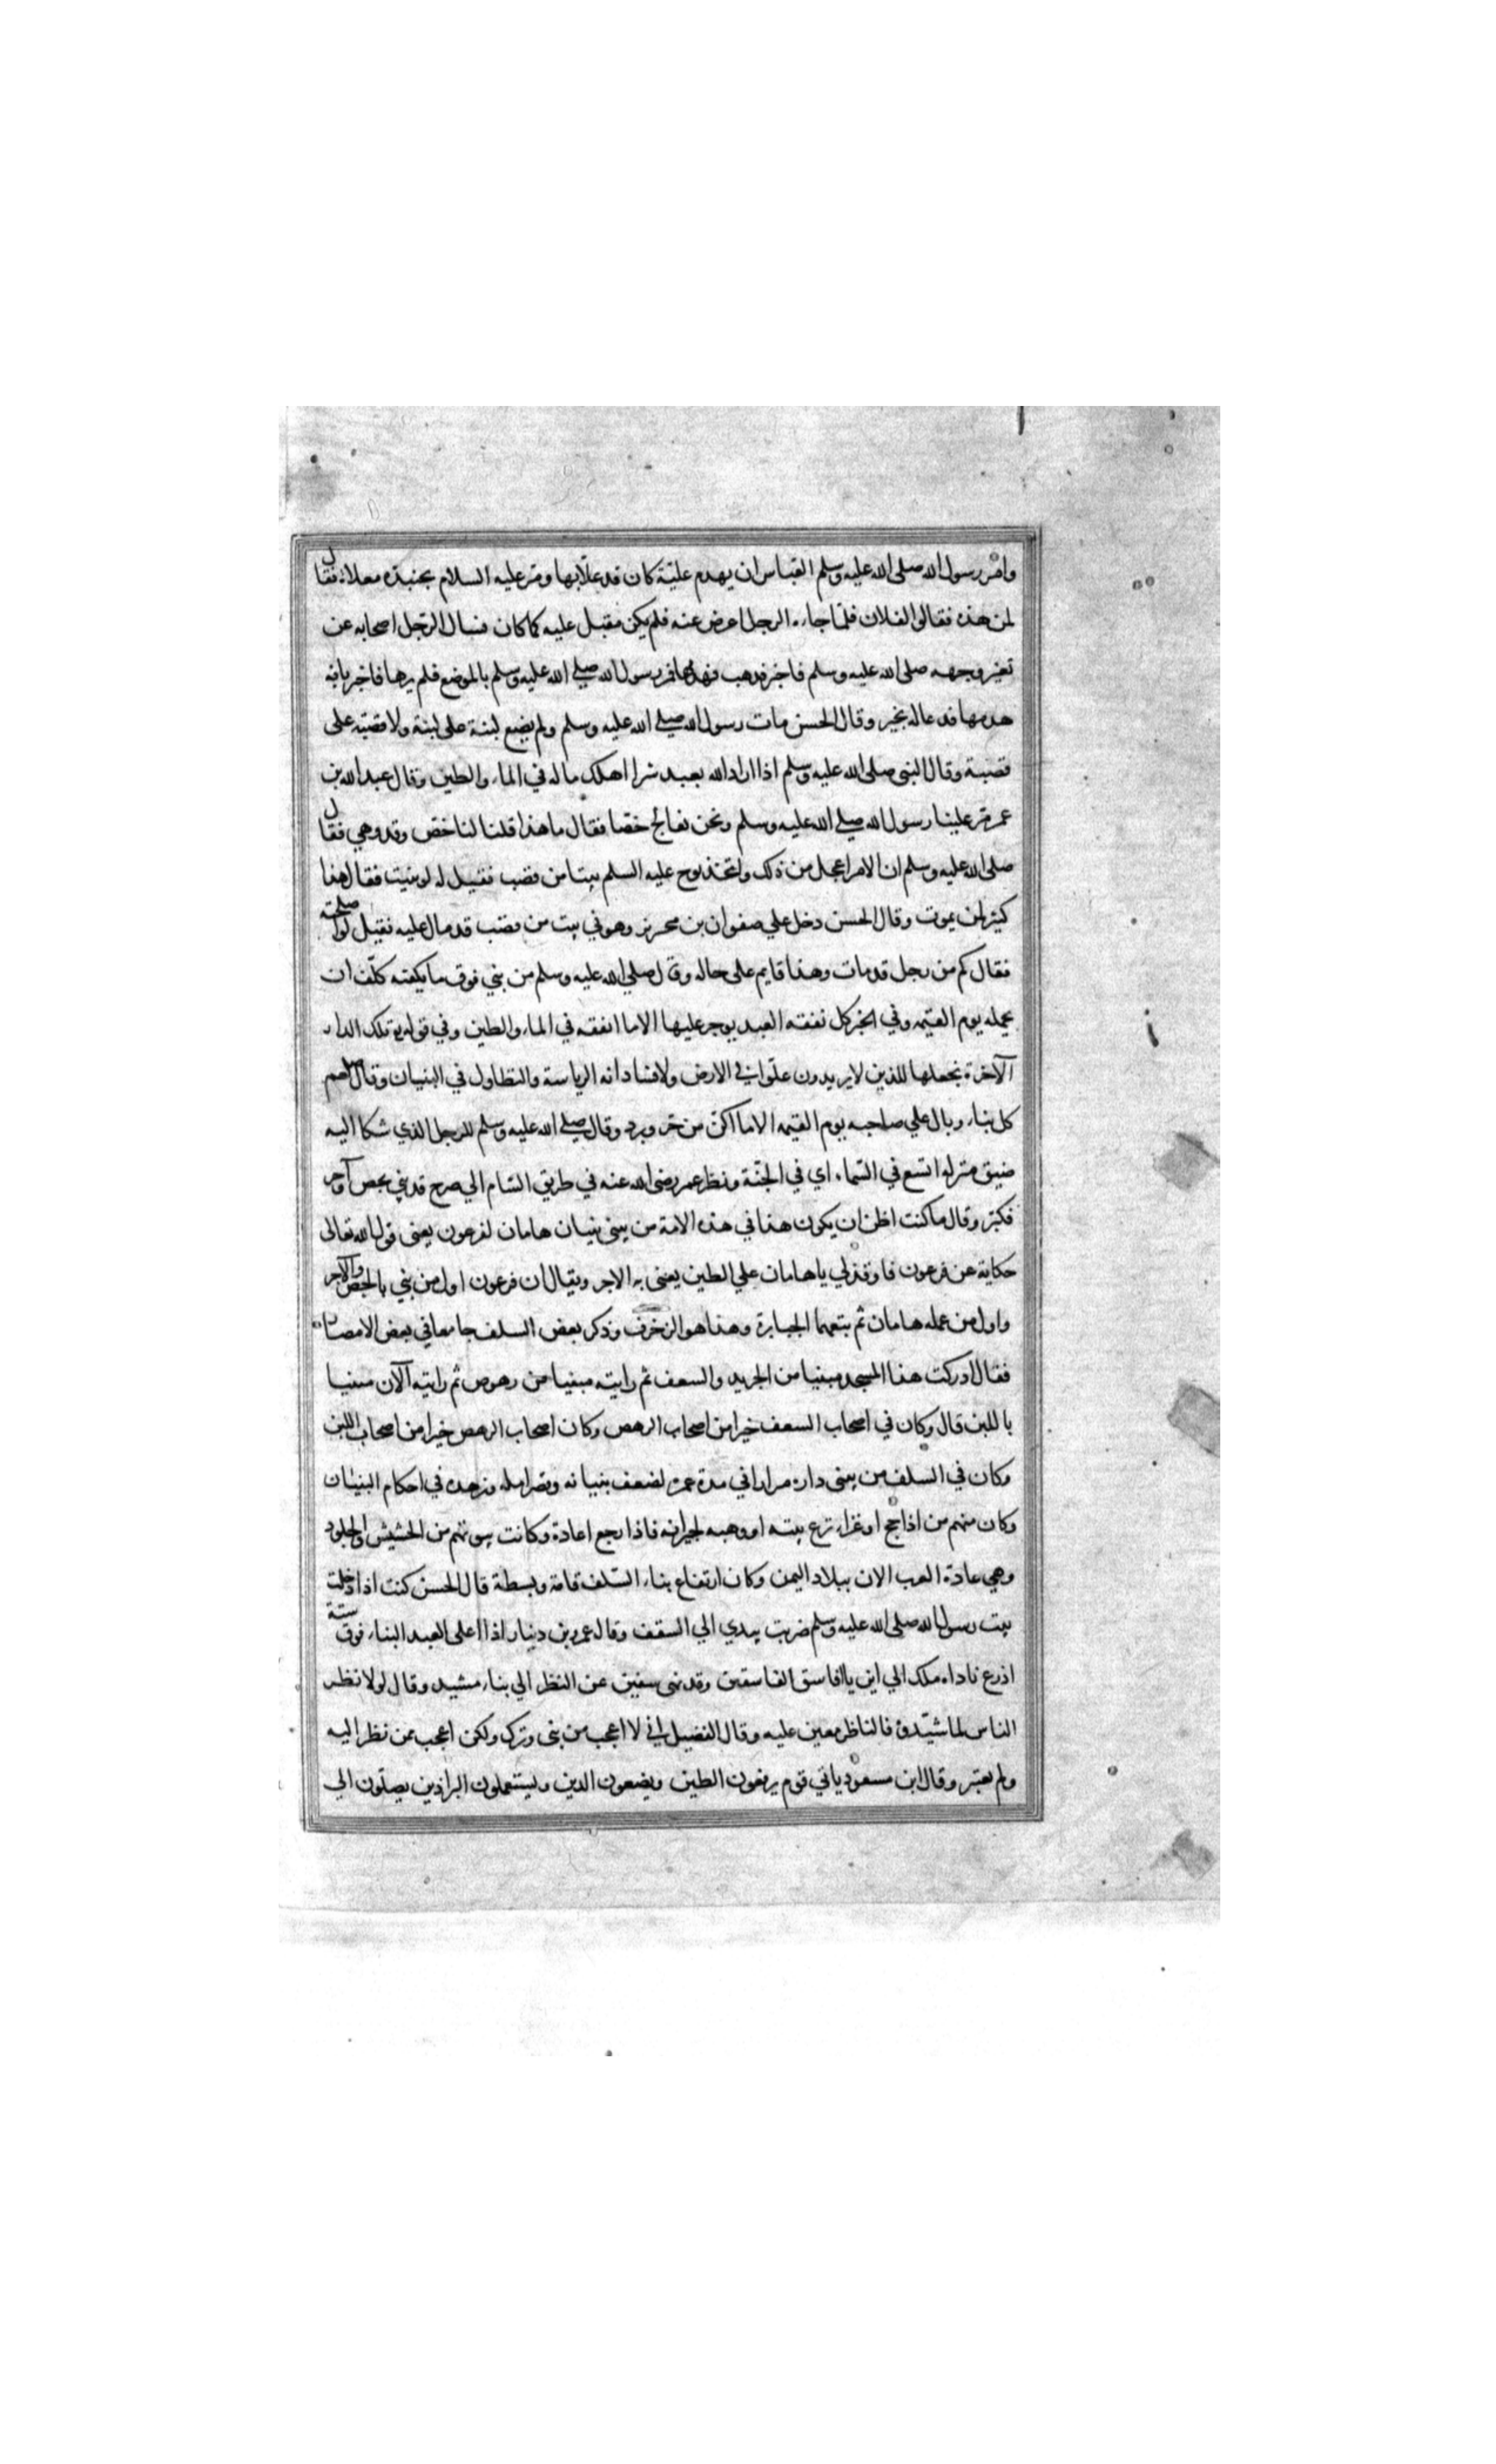 وامر رسول الله صلى الله عليه وسلم العباس ان يهدم علية كان قد علا بها ومر عليه السلام بجنبذة معلاة فقال
لمن هذه فقالوا لفلان فلما جاء الرجل اعرض عنه فلم يكن مقبل عليه كما كان فسال الرجل اصحابه عن
تغير وجهه صلى الله عليه وسلم فاخبر فذهب فهدمها فمر رسول الله صلى الله عليه وسلم بالموضع فلم يرها فاخبر بانه
هدمها فدعا له بخير وقال الحسن مات رسول الله صلى الله عليه وسلم ولم يضع لبنة على لبنة ولا قصبة على
قصبة وقال النبي صلى الله عليه وسلم اذا اراد الله بعبد شرا اهلك ماله في الماء والطين وقال عبد الله بن
عمر مر علينا رسول الله صلى الله عليه وسلم ونحن نعالج خصا فقال ما هذا قلنا لنا خص وقد وهي فقال
صلى الله عليه وسلم ان الامر اعجل من ذلك واتخذ نوح عليه السلم بيتا من قصب فقيل له لو بنيت فقال هذا
كثير لمن يموت وقال الحسن دخل علي صفوان بن محريز وهو في بيت من قصب قد مال عليه فقيل لو اصلحته
فقال كم من رجل قد مات وهذا قايم على حاله وقال صلي الله عليه وسلم من بني فوق ما يكفيه كلف ان
يحمله يوم القيمه وفي الخبر كل نفقه العبد يوجر عليها الا ما انفقه في الماء والطين وفي قوله تع تلك الدار
الآخرة نجعلها للذين لا يريدون علوا في الارض ولا فسادا انه الرياسة والتطاول في البنيان وقال صلعم
كل بناء وبال علي صاحبه يوم القيمه الا ما اكن من حر وبرد وقال صلي الله عليه وسلم للرجل الذي شكا اليه
ضيق منزله اتسع في السماء اي في الجنة ونظر عمر رضى الله عنه في طريق الشام الي صرح قد بني بجص وآجر
فكبر وقال ما كنت اظن ان يكون هذا في هذه الامة من يبنى بنيان هامان لفرعون يعنى قول الله تعالى
حكاية عن فرعون فاوقد لي يا هامان علي الطين يعنى به الاجر ويقال ان فرعون اول من بني بالجص والآجر
واول من عمله هامان ثم تبعهما الجبابرة وهذا هو الزخرف وذكر بعض السلف جامعا في بعض الامصار
فقال ادركت هذا المسجد مبنيا من الجريد والسعف ثم رايته مبنيا من رهوص ثم رايته الآن مبنيا
باللبن قال وكان في اصحاب السعف خيرا من اصحاب الرهص وكان اصحاب الرهص خيرا من اصحاب اللبن
وكان في السلف من يبنى داره مرارا في مدة عمره لضعف بنيانه وقصر امله وزهده في احكام البنيان
وكان منهم من اذا حج او غزاء نزع بيته او وهبه لجيرانه فاذا رجع اعادة وكانت بيوتهم من الحشيش والجلود
وهي عادة العرب الان ببلاد اليمن وكان ارتفاع بناء السلف قامة وبسطة قال الحسن كنت اذا دخلت
بيت رسول الله صلى الله عليه وسلم ضربت بيدي الي السقف وقال عمر بن دينار اذا اعلى العبد البناء فوق ستة
اذرع ناداه ملك الي اين يا افاسق الفاسقين وقد نهى سفين عن النظر الي بناء مشيد وقال لولا نظر
الناس لما شيدوه فالناظر معين عليه وقال الفضيل اني لا اعجب من بنى وترك ولكن اعجب ممن نظر اليه
ولم يعتبر وقال ابن مسعود ياتي قوم يرفعون الطين ويضعون الدين ويستعملون البراذين يصلون الي